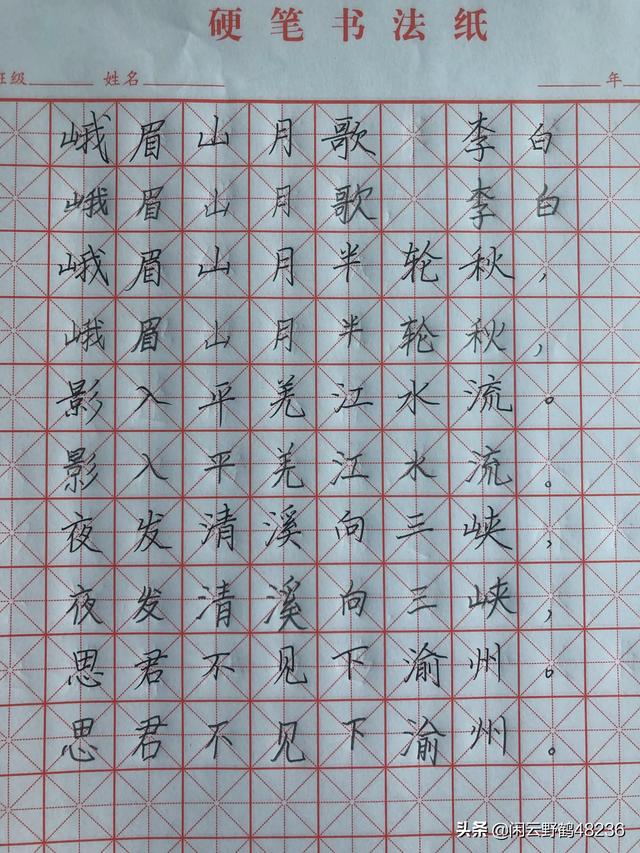 硬笔书法纸
班级 姓名 年
峨眉山月歌 李白
峨眉山月歌 李白
峨眉山月半轮秋,
峨眉山月半轮秋,
影入平羌江水流。
影入平羌江水流。
夜发清溪向三峡,
夜发清溪向三峡,
思君不见下渝州。
思君不见下渝州。
头条 @闲云野鹤48236